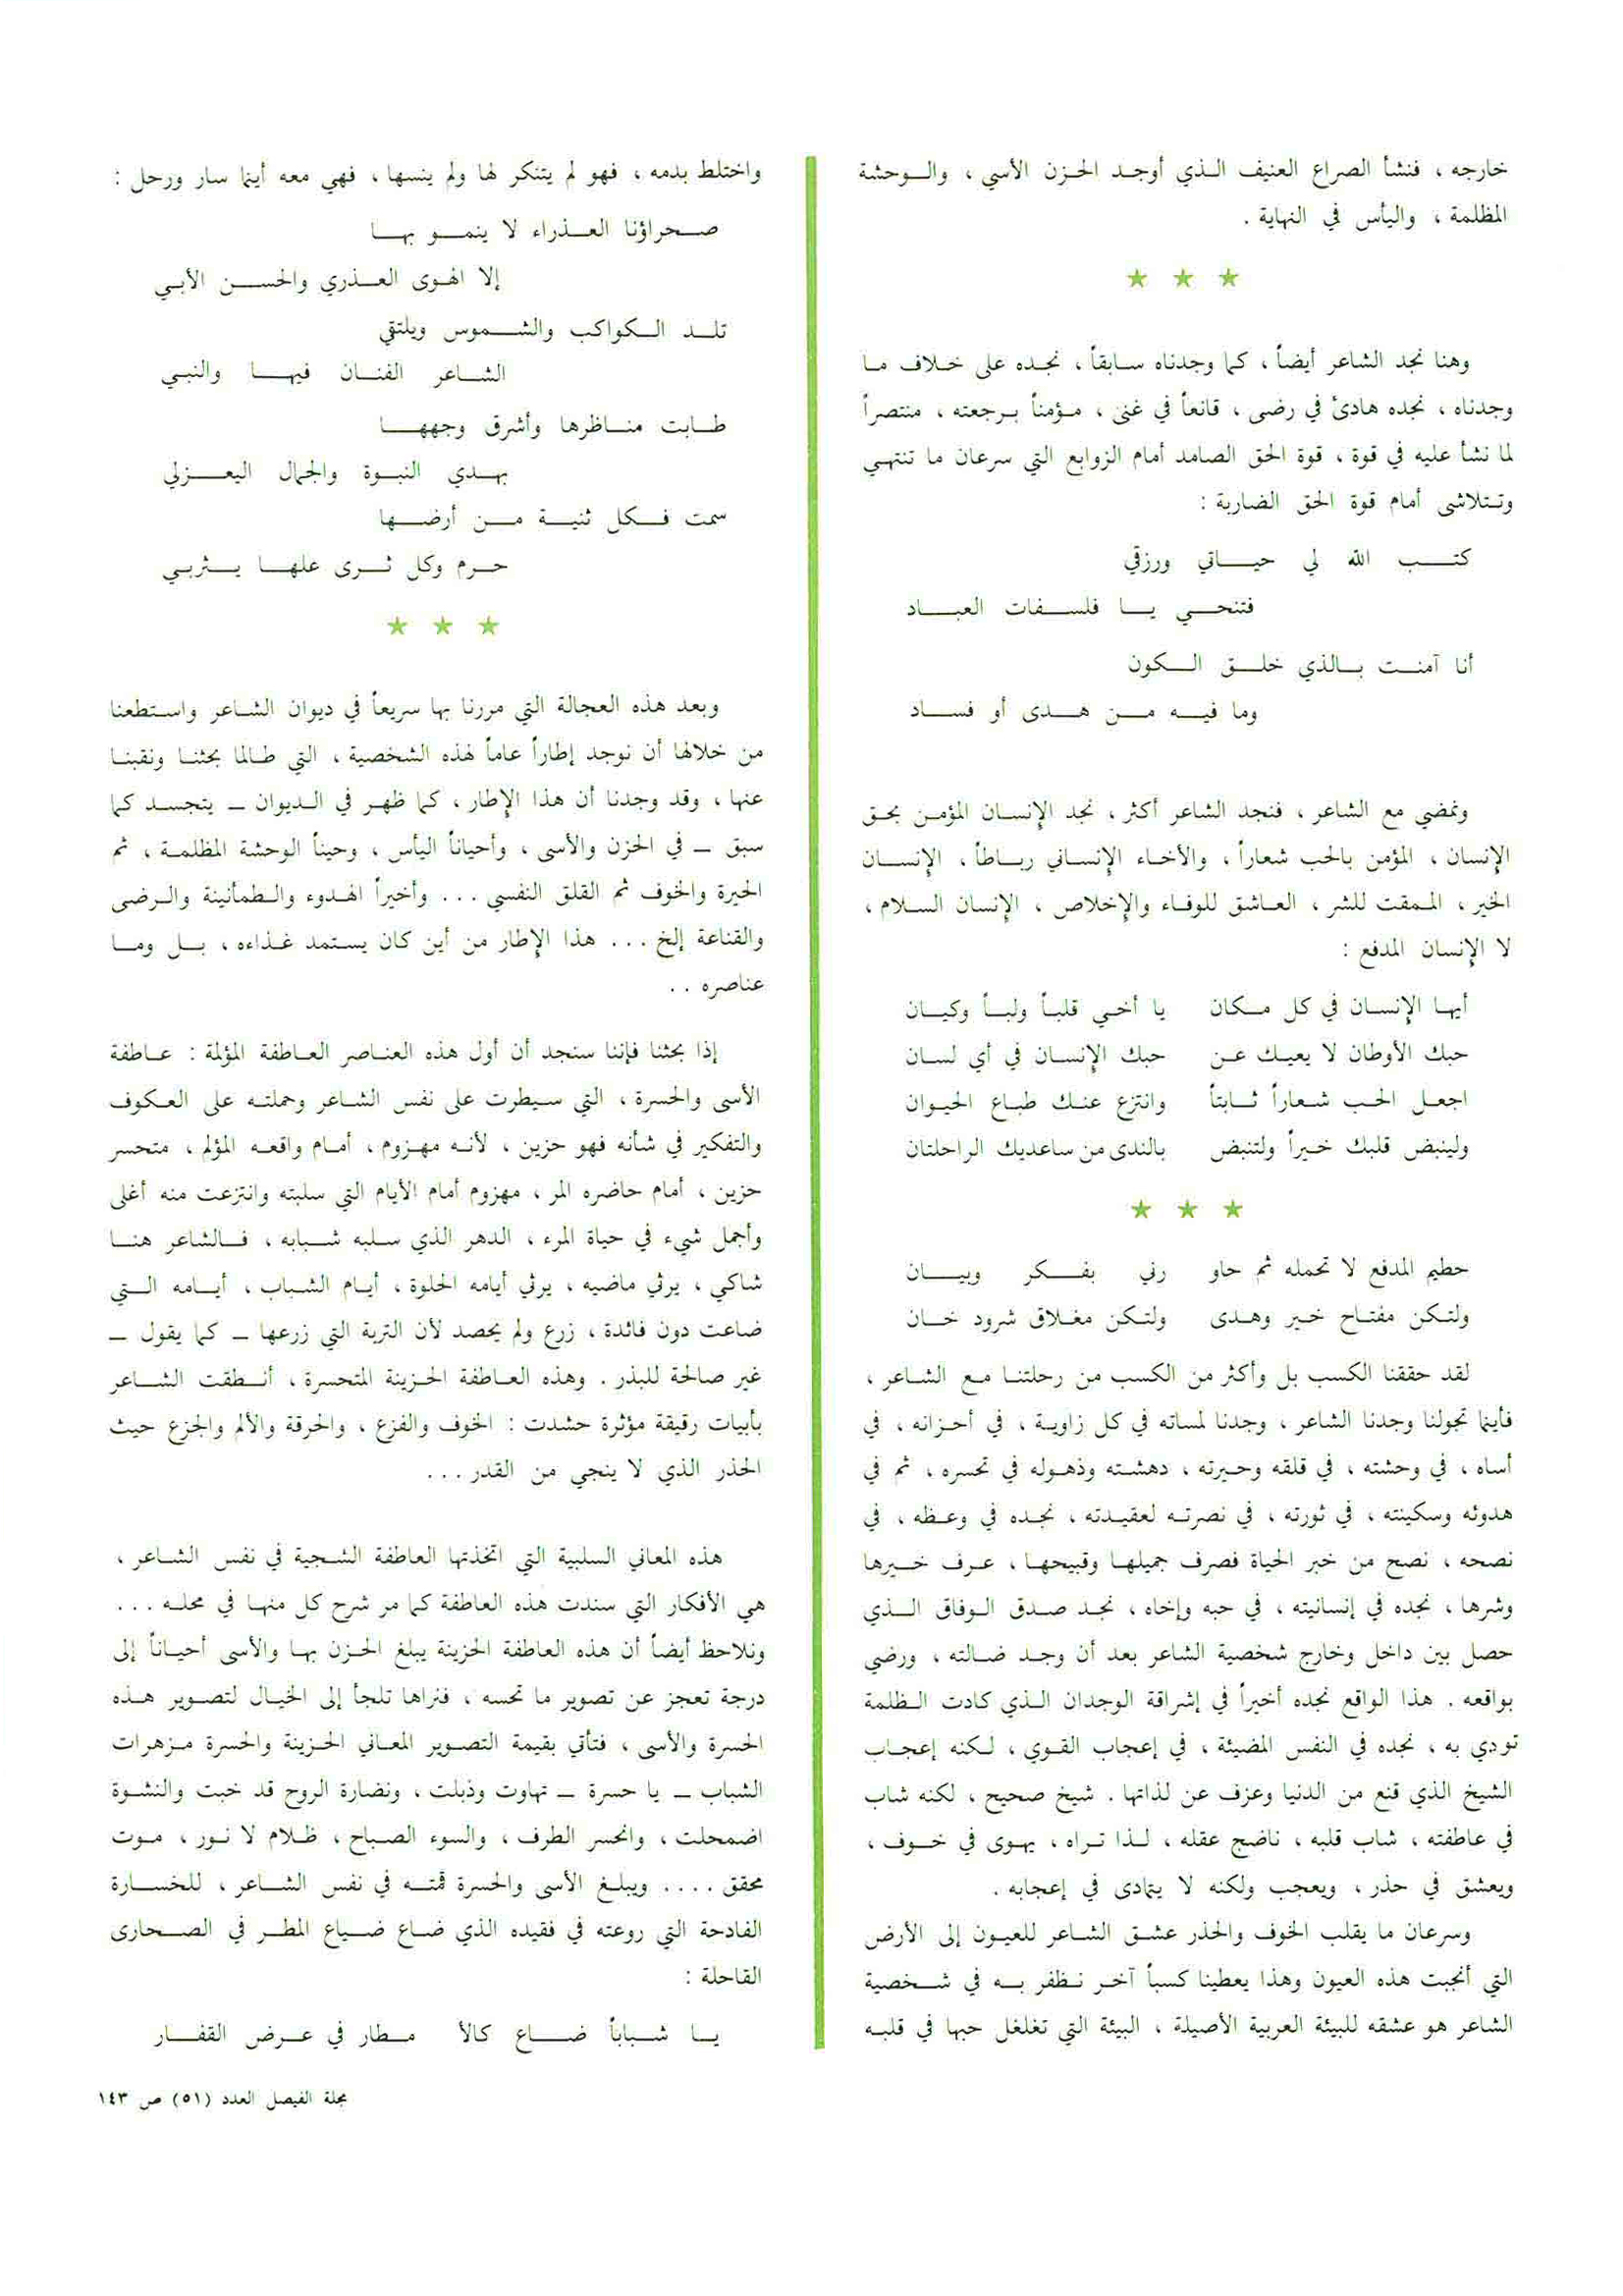 خارجه ، فنشأ الصراع العنيف الذي أوجد الحزن الأسي ، والوحشة
المظلمة ، واليأس في النهاية .
★ ★ ★
وهنا نجد الشاعر أيضاً ، كما وجدناه سابقاً ، نجده على خلاف ما
وجدناه ، نجده هادئ في رضى ، قانعاً في غنى ، مؤمناً برجعته ، منتصراً
لما نشأ عليه في قوة ، قوة الحق الصامد أمام الزوابع التي سرعان ما تنتهي
وتتلاشى أمام قوة الحق الضاربة :
كتب الله لي حياتي ورزقي
فتنحي يا فلسفات العباد
أنا آمنت بالذي خلق الكون
وما فيه من هدى أو فساد
ونمضي مع الشاعر ، فنجد الشاعر أكثر ، نجد الإنسان المؤمن بحق
الإنسان ، المؤمن بالحب شعاراً ، والأخاء الإنساني رباطاً ، الإنسان
الخير ، الممقت للشر ، العاشق للوفاء والإخلاص ، الإنسان السلام ،
لا الإنسان المدفع :
أيها الإنسان في كل مكان يا أخي قلباً ولباً وكيان
حبك الأوطان لا يعيك عن حبك الإنسان في أي لسان
اجعل الحب شعاراً ثابتاً وانتزع عنك طباع الحيوان
ولينبض قلبك خيراً ولتنبض بالندى من ساعديك الراحلتان
★ ★ ★
حطيم المدفع لا تحمله ثم حاو رني بفكر وبيان
ولتكن مفتاح خير وهدى ولتكن مغلاق شرود خان
لقد حققنا الكسب بل وأكثر من الكسب من رحلتنا مع الشاعر ،
فأينما تجولنا وجدنا الشاعر ، وجدنا لمساته في كل زاوية ، في أحزانه ، في
أساه ، في وحشته ، في قلقه وحيرته ، دهشته وذهوله في تحسره ، ثم في
هدوئه وسكينته ، في ثورته ، في نصرته لعقيدته ، نجده في وعظه ، في
نصحه ، نصح من خبر الحياة فصرف جميلها وقبيحها ، عرف خيرها
وشرها ، نجده في إنسانيته ، في حبه وإخاه ، نجد صدق الوفاق الذي
حصل بين داخل وخارج شخصية الشاعر بعد أن وجد ضالته ، ورضي
بواقعه . هذا الواقع نجده أخيراً في إشراقة الوجدان الذي كادت الظلمة
تودي به ، نجده في النفس المضيئة ، في إعجاب القوي ، لكنه إعجاب
الشيخ الذي قنع من الدنيا وعزف عن لذاتها . شيخ صحيح ، لكنه شاب
في عاطفته ، شاب قلبه ، ناضج عقله ، لذا تراه ، يهوى في خوف ،
ويعشق في حذر ، ويعجب ولكنه لا يتمادى في إعجابه .
وسرعان ما يقلب الخوف والحذر عشق الشاعر للعيون إلى الأرض
التي أنجبت هذه العيون وهذا يعطينا كسباً آخر نظفر به في شخصية
الشاعر هو عشقه للبيئة العربية الأصيلة ، البيئة التي تغلغل حبها في قلبه
واختلط بدمه ، فهو لم يتنكر لها ولم ينسها ، فهي معه أينما سار ورحل :
صحراؤنا العذراء لا ينمو بها
إلا الهوى العذري والحسن الأبي
تلد الكواكب والشموس ويلتقي
الشاعر الفنان فيها والنبي
طابت مناظرها وأشرق وجهها
بهدي النبوة والجمال اليعزلي
سمت فكل ثنية من أرضها
حرم وكل ثرى علها يثربي
★ ★ ★
وبعد هذه العجالة التي مررنا بها سريعاً في ديوان الشاعر واستطعنا
من خلالها أن نوجد إطاراً عاماً لهذه الشخصية ، التي طالما بحثنا ونقبنا
عنها ، وقد وجدنا أن هذا الإطار ، كما ظهر في الديوان ــ يتجسد كما
سبق ــ في الحزن والأسى ، وأحياناً اليأس ، وحيناً الوحشة المظلمة ، ثم
الحيرة والخوف ثم القلق النفسي ... وأخيراً الهدوء والطمأنينة والرضى
والقناعة إلخ ... هذا الإطار من أين كان يستمد غذاءه ، بل وما
عناصره ..
إذا بحثنا فإننا سنجد أن أول هذه العناصر العاطفة المؤلمة : عاطفة
الأسى والحسرة ، التي سيطرت على نفس الشاعر وحملته على العكوف
والتفكير في شأنه فهو حزين ، لأنه مهزوم ، أمام واقعه المؤلم ، متحسر
حزين ، أمام حاضره المر ، مهزوم أمام الأيام التي سلبته وانتزعت منه أغلى
وأجمل شيء في حياة المرء ، الدهر الذي سلبه شبابه ، فالشاعر هنا
شاكي ، يرثي ماضيه ، يرثي أيامه الحلوة ، أيام الشباب ، أيامه التي
ضاعت دون فائدة ، زرع ولم يحصد لأن التربة التي زرعها ــ كما يقول ــ
غير صالحة للبذر . وهذه العاطفة الحزينة المتحسرة ، أنطقت الشاعر
بأبيات رقيقة مؤثرة حشدت : الخوف والفزع ، والحرقة والألم والجزع حيث
الحذر الذي لا ينجي من القدر ...
هذه المعاني السلبية التي اتخذتها العاطفة الشجية في نفس الشاعر ،
هي الأفكار التي سندت هذه العاطفة كما مر شرح كل منها في محله ...
ونلاحظ أيضاً أن هذه العاطفة الحزينة يبلغ الحزن بها والأسى أحياناً إلى
درجة تعجز عن تصوير ما تحسه ، فنراها تلجأ إلى الخيال لتصوير هذه
الحسرة والأسى ، فتأتي بقيمة التصوير المعاني الحزينة والحسرة مزهرات
الشباب ــ يا حسرة ــ تهاوت وذبلت ، ونضارة الروح قد خبت والنشوة
اضمحلت ، وانحسر الطرف ، والسوء الصباح ، ظلام لا نور ، موت
محقق .... ويبلغ الأسى والحسرة قمته في نفس الشاعر ، للخسارة
الفادحة التي روعته في فقيده الذي ضاع ضياع المطر في الصحارى
القاحلة :
يا شباباً ضاع كالأ مطار في عرض القفار
مجلة الفيصل العدد (٥١) ص ١٤٣